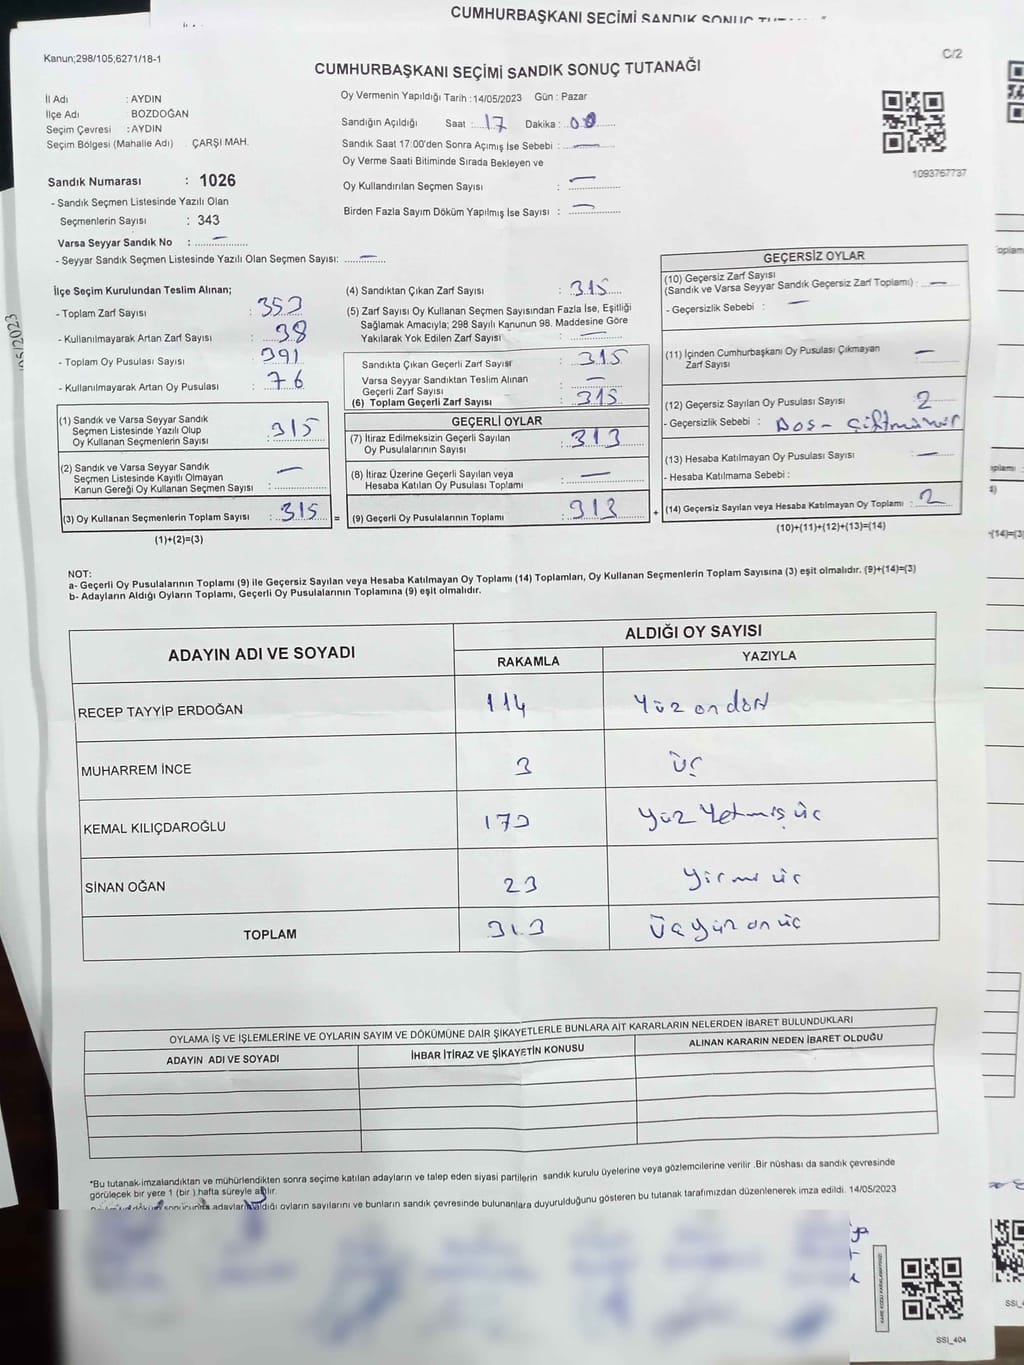 CUMHURBAŞKANI SECİMİ SANDIK SONUÇ
Kanun;298/105,6271/18-1
C/2
CUMHURBAŞKANI SEÇİMİ SANDIK SONUÇ TUTANAĞI
İl Adı : AYDIN
İlçe Adı : BOZDOĞAN
Seçim Çevresi : AYDIN
Seçim Bölgesi (Mahalle Adı) . ÇARŞI MAH.
Sandık Numarası : 1026
- Sandık Seçmen Listesinde Yazılı Olan
Seçmenlerin Sayısı : 343
Varsa Seyyar Sandık No : —
- Seyyar Sandık Seçmen Listesinde Yazılı Olan Seçmen Sayısı: —
Oy Vermenin Yapıldığı Tarih : 14/05/2023 Gün : Pazar
Sandığın Açıldığı Saat : 17 Dakika : 00
Sandık Saat 17:00'den Sonra Açımış İse Sebebi : —
Oy Verme Saati Bitiminde Sırada Bekleyen ve
Oy Kullandırılan Seçmen Sayısı : —
Birden Fazla Sayım Döküm Yapılmış İse Sayısı : —
1093767737
İlçe Seçim Kurulundan Teslim Alınan;
- Toplam Zarf Sayısı : 353
- Kullanılmayarak Artan Zarf Sayısı : 38
- Toplam Oy Pusulası Sayısı : 391
- Kullanılmayarak Artan Oy Pusulası : 76
(1) Sandık ve Varsa Seyyar Sandık
Seçmen Listesinde Yazılı Olup
Oy Kullanan Seçmenlerin Sayısı : 315
(2) Sandık ve Varsa Seyyar Sandık
Seçmen Listesinde Kayıtlı Olmayan
Kanun Gereği Oy Kullanan Seçmen Sayısı : —
(3) Oy Kullanan Seçmenlerin Toplam Sayısı : 315
(1)+(2)=(3)
=
(4) Sandıktan Çıkan Zarf Sayısı : 315
(5) Zarf Sayısı Oy Kullanan Seçmen Sayısından Fazla İse, Eşitliği
Sağlamak Amacıyla; 298 Sayılı Kanunun 98. Maddesine Göre
Yakılarak Yok Edilen Zarf Sayısı : —
Sandıkta Çıkan Geçerli Zarf Sayısı : 315
Varsa Seyyar Sandıktan Teslim Alınan
Geçerli Zarf Sayısı : —
(6) Toplam Geçerli Zarf Sayısı : 315
GEÇERLİ OYLAR
(7) İtiraz Edilmeksizin Geçerli Sayılan
Oy Pusulalarının Sayısı : 313
(8) İtiraz Üzerine Geçerli Sayılan veya
Hesaba Katılan Oy Pusulası Toplamı : —
(9) Geçerli Oy Pusulalarının Toplamı : 313
+
GEÇERSİZ OYLAR
(10) Geçersiz Zarf Sayısı
(Sandık ve Varsa Seyyar Sandık Geçersiz Zarf Toplamı) : —
- Geçersizlik Sebebi : —
(11) İçinden Cumhurbaşkanı Oy Pusulası Çıkmayan
Zarf Sayısı : —
(12) Geçersiz Sayılan Oy Pusulası Sayısı : 2
- Geçersizlik Sebebi : Boş -
(13) Hesaba Katılmayan Oy Pusulası Sayısı : —
- Hesaba Katılmama Sebebi :
(14) Geçersiz Sayılan veya Hesaba Katılmayan Oy Toplamı : 2
(10)+(11)+(12)+(13)=(14)
NOT:
a- Geçerli Oy Pusulalarının Toplamı (9) ile Geçersiz Sayılan veya Hesaba Katılmayan Oy Toplamı (14) Toplamları, Oy Kullanan Seçmenlerin Toplam Sayısına (3) eşit olmalıdır. (9)+(14)=(3)
b- Adayların Aldığı Oyların Toplamı, Geçerli Oy Pusulalarının Toplamına (9) eşit olmalıdır.
ADAYIN ADI VE SOYADI
ALDIĞI OY SAYISI
RAKAMLA YAZIYLA
RECEP TAYYİP ERDOĞAN 114 Yüz on dört
MUHARREM İNCE 3 üç
KEMAL KILIÇDAROĞLU 173 yüz yetmiş üç
SİNAN OĞAN 23 yirmi üç
TOPLAM 313 üçyüz on üç
OYLAMA İŞ VE İŞLEMLERİNE VE OYLARIN SAYIM VE DÖKÜMÜNE DAİR ŞİKAYETLERLE BUNLARA AİT KARARLARIN NELERDEN İBARET BULUNDUKLARI
ADAYIN ADI VE SOYADI İHBAR İTİRAZ VE ŞİKAYETİN KONUSU ALINAN KARARIN NEDEN İBARET OLDUĞU
*Bu tutanak imzalandıktan ve mühürlendikten sonra seçime katılan adayların ve talep eden siyasi partilerin sandık kurulu üyelerine veya gözlemcilerine verilir .Bir nüshası da sandık çevresinde
görülecek bir yere 1 (bir ) hafta süreyle asılır.
adayların aldığı oyların sayılarını ve bunların sandık çevresinde bulunanlara duyurulduğunu gösteren bu tutanak tarafımızdan düzenlenerek imza edildi. 14/05/2023
SSI_404